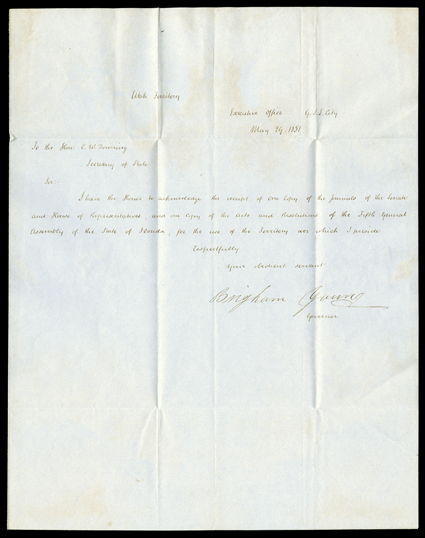 Utah Territory
Executive Office G. S. L. City
May 29. 1851
To the Hon. C. W. Downing
Secretary of State
Sir:
I have the Honor to acknowledge the receipt of One Copy of the Journals of the Senate
and House of Representatives, and one Copy of the Acts and Resolutions of the Fifth General
Assembly of the State of Florida, for the use of the Territory over which I preside
Respectfully
Your Obedient servant
Brigham Young
Governor